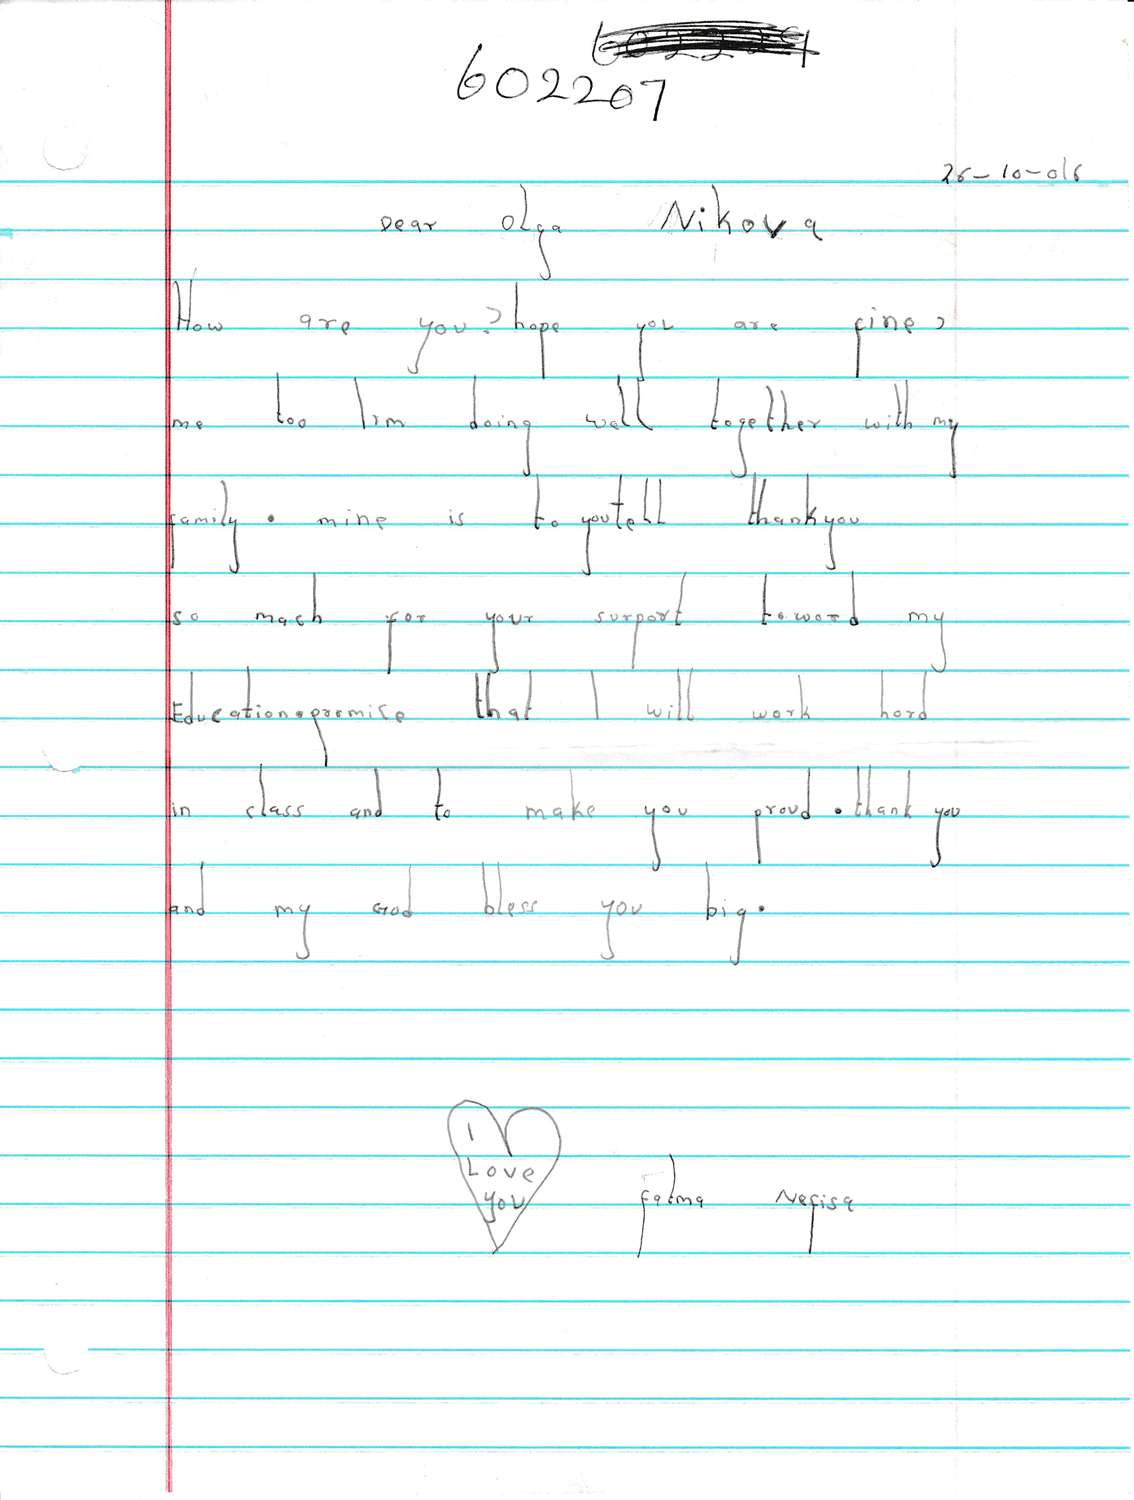 602207
26-10-016
Dear Olga Nikova
How are you? hope you are fine,
me too I'm doing well together with my
family. mine is to you tell thank you
so mach for your surport toword my
Education. promise that I will work hord
in class and to make you proud. thank you
and my God bless you big.
I
Love
you
Fatma Nefisa